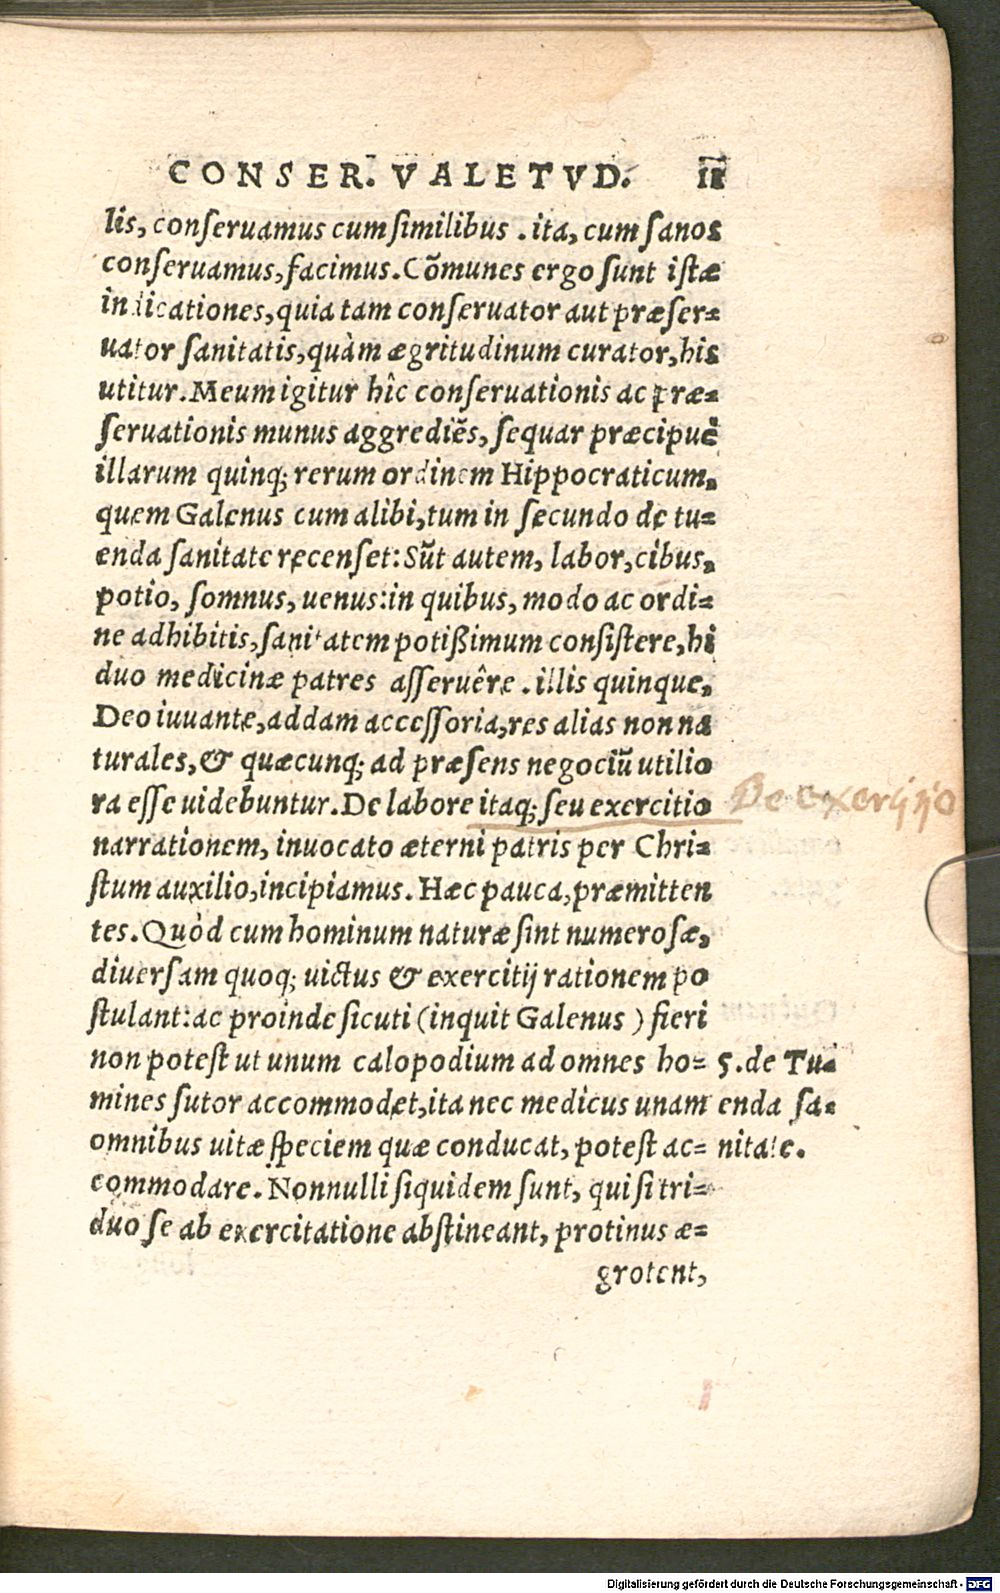 CONSER. VALETVD. 11
lis, conſeruamus cum ſimilibus . ita, cum ſanos
conſeruamus, facimus. Cõmunes ergo ſunt iſtæ
indicationes, quia tam conſeruator aut præſer-
uator ſanitatis, quàm ægritudinum curator, his
utitur. Meum igitur hîc conſeruationis ac præ-
ſeruationis munus aggrediẽs, ſequar præcipuè
illarum quinq; rerum ordinem Hippocraticum,
quem Galenus cum alibi, tum in ſecundo de tu-
enda ſanitate recenſet: Sũt autem, labor, cibus,
potio, ſomnus, uenus: in quibus, modo ac ordi-
ne adhibitis, ſanitatem potißimum conſiſtere, hi
duo medicinæ patres aſſeruêre . illis quinque,
Deo iuuante, addam acceſſoria, res alias non na
turales, & quæcunq; ad præſens negociũ utilio
ra eſſe uidebuntur. De labore itaq; ſeu exercitio
De exercijio
narrationem, inuocato æterni patris per Chri-
ſtum auxilio, incipiamus. Hæc pauca, præmitten
tes. Quòd cum hominum naturæ ſint numeroſæ,
diuerſam quoq; uictus & exercitij rationem po
ſtulant: ac proinde ſicuti (inquit Galenus ) fieri
non poteſt ut unum calopodium ad omnes ho-
mines ſutor accommodet, ita nec medicus unam
omnibus uitæ ſpeciem quæ conducat, poteſt ac-
commodare. Nonnulli ſiquidem ſunt, qui ſi tri-
duo ſe ab exercitatione abſtineant, protinus æ-
grotent,
5. de Tu-
enda ſa-
nitate.
Digitalisierung gefördert durch die Deutsche Forschungsgemeinschaft - DFG